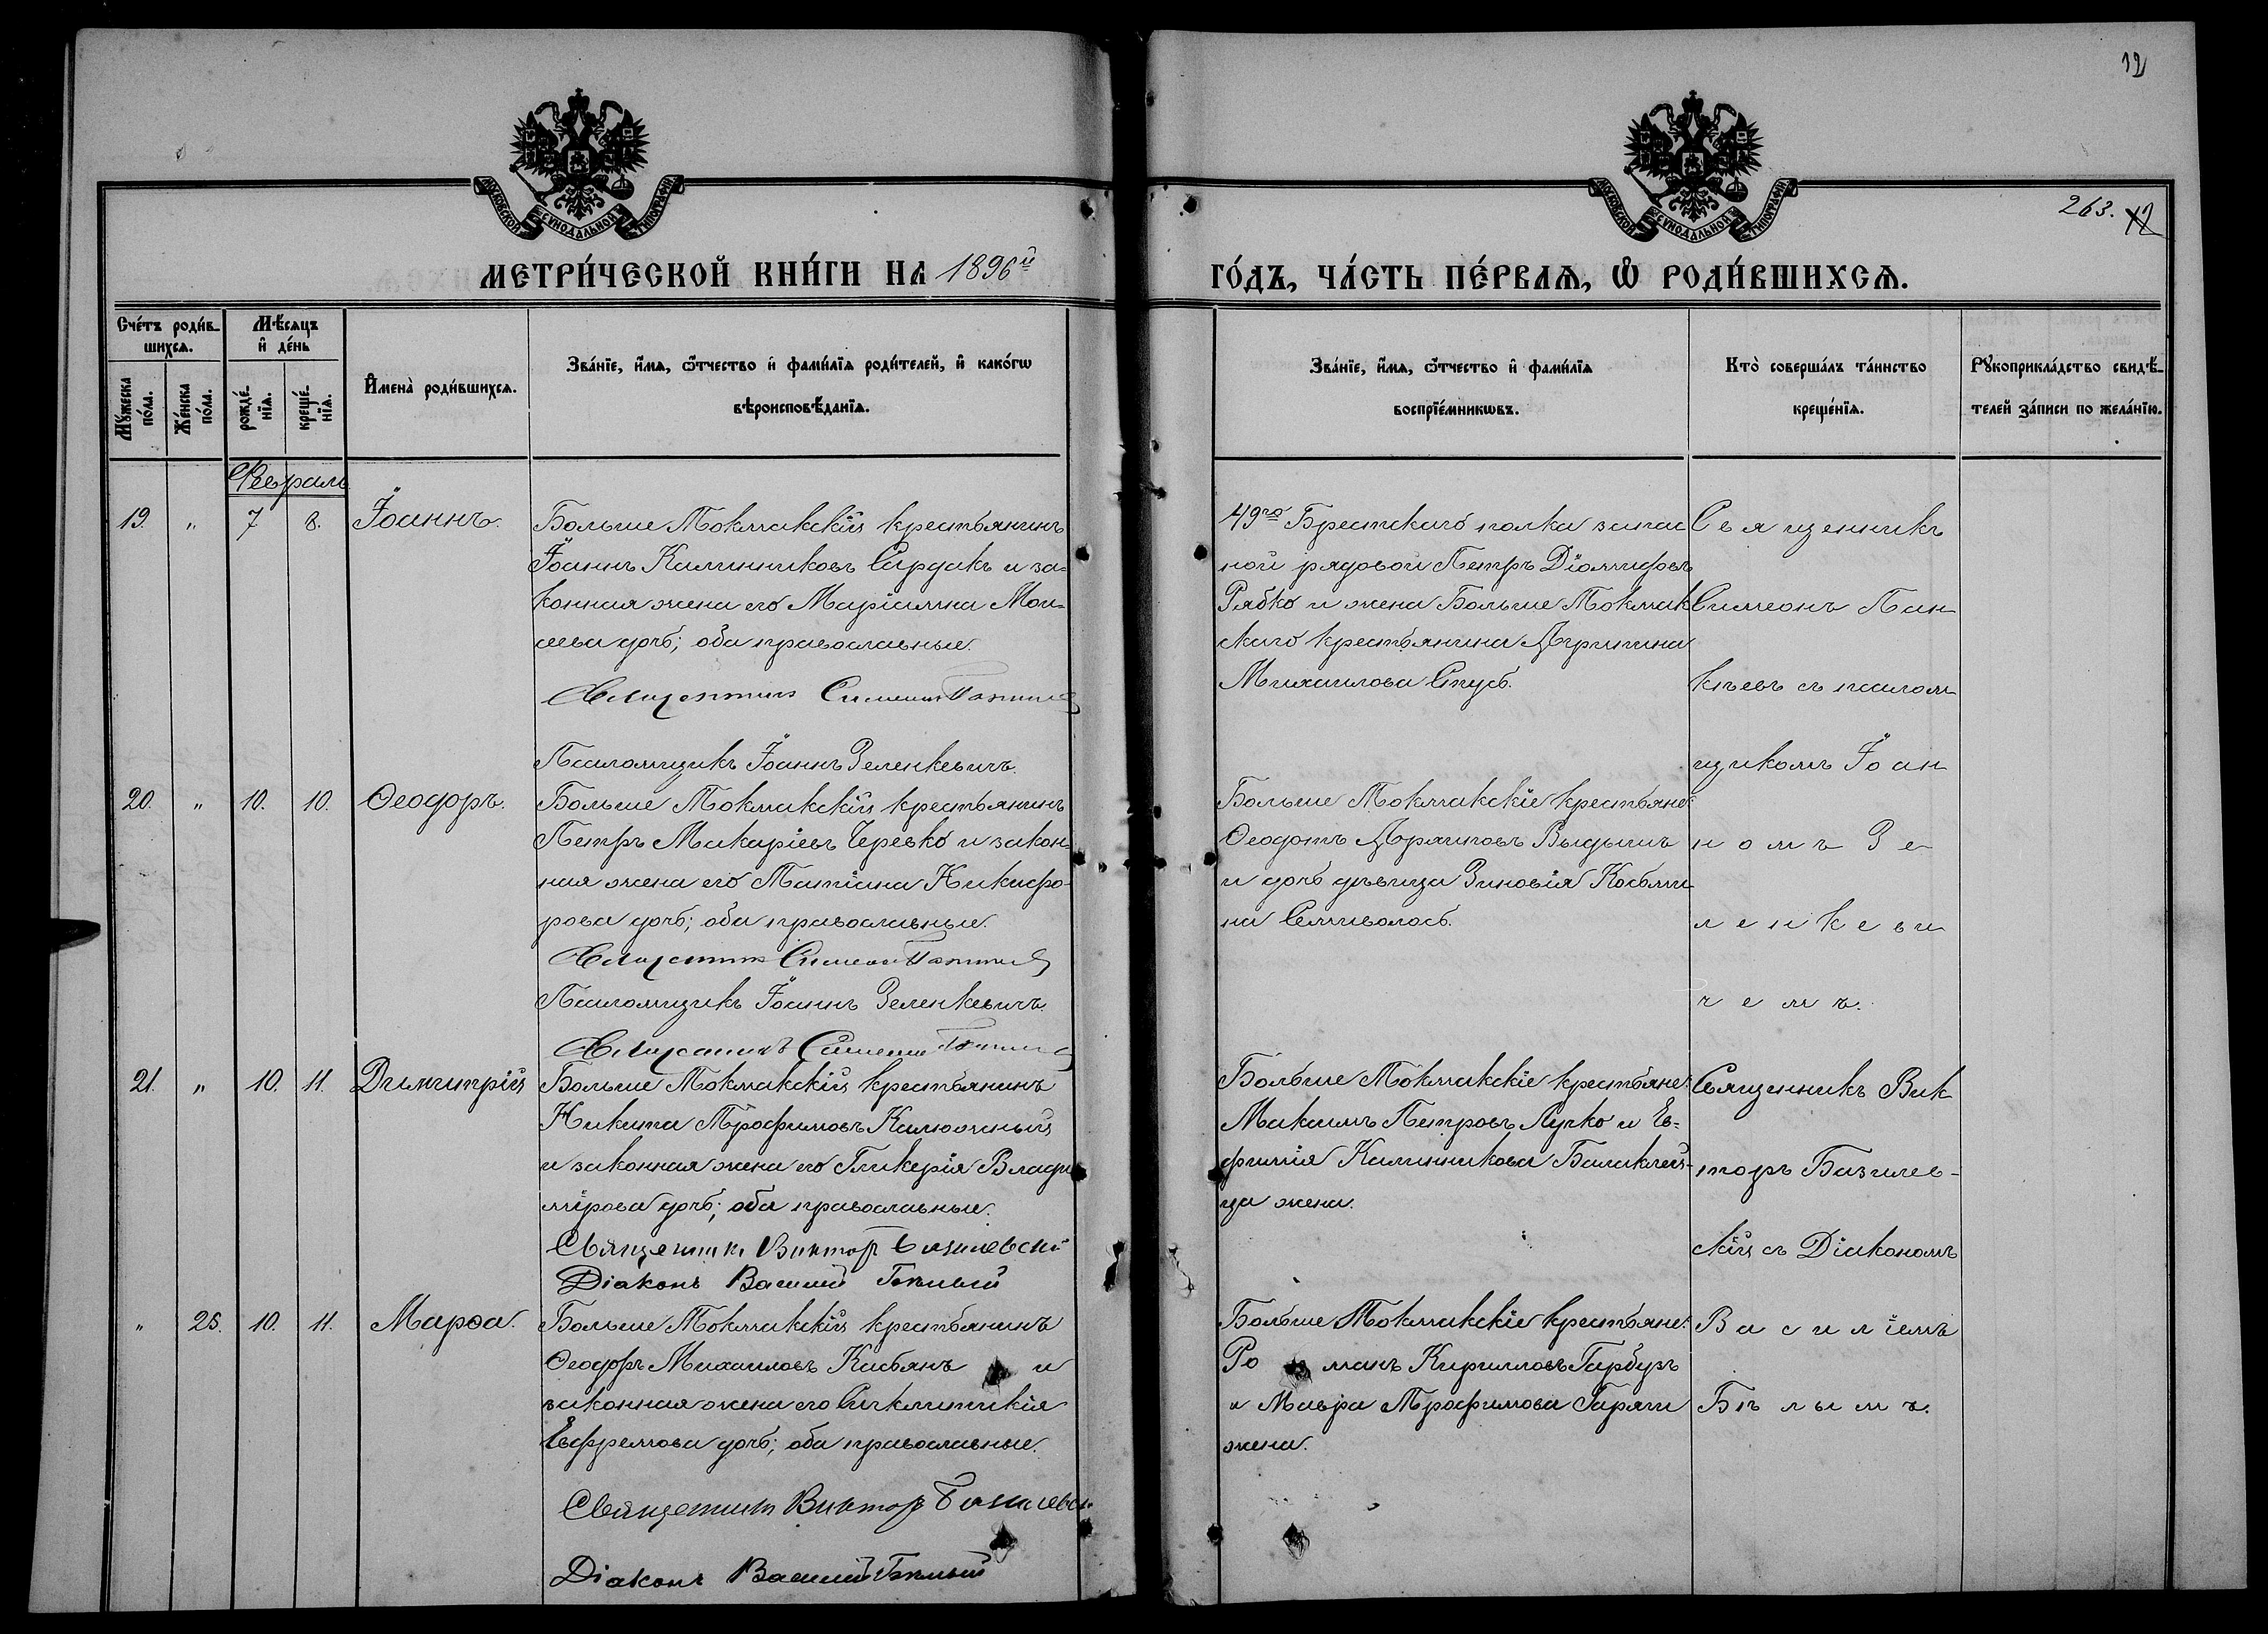 12
МОСКОВСКОЙ СѴНОДАЛЬНОЙ ТИПОГРАФІИ
МОСКОВСКОЙ СѴНОДАЛЬНОЙ ТИПОГРАФІИ
263. 12
МЕТРИ́ЧЕСКОЙ КНИ́ГИ НА 1896й
ГО́ДЪ, ЧА́СТЬ ПЕ́РВАѦ, Ѽ РОДИ́ВШИХСѦ.
Сче́тъ роди́в-
шихсѧ.
Мѣ́сѧцъ
и҆ де́нь
Мꙋ́жеска
по́ла.
Же́нска
по́ла.
рожде́-
нїѧ.
креще́-
нїѧ.
И҆мена̀ роди́вшихсѧ.
Зва́нїе, и҆́мѧ, ѻ҆́тчество и҆ фами́лїѧ роди́телей, и҆ како́гѡ
вѣроисповѣ́данїѧ.
Зва́нїе, и҆́мѧ, ѻ҆́тчество и҆ фами́лїѧ
воспрїе́мникѡвъ.
Кто̀ соверша́лъ та́инство
креще́нїѧ.
Рꙋкоприкла́дство свидѣ́-
телей за́писи по жела́нїю.
Февраль
19. " 7 8. Іоаннъ.
Больше Токмакскій крестьянинъ
Іоаннъ Калинниковъ Сардакъ и за-
конная жена его Маріамна Мои-
сеева дочь; оба православные.
Священникъ Симеонъ
Псаломщикъ Іоаннъ Зеленкевичъ.
49го Брестскаго полка запас
ной рядовой Петръ Діомидовъ
Рябко и жена Больше Токмак
скаго крестьянина Агрипина
Михаилова Стусь.
Священникъ
Симеонъ Пан
къевъ съ псалом
щикомъ Іоан
номъ Зе
ленкеви
чемъ.
20. " 10. 10. Ѳеодоръ.
Больше Токмакскій крестьянинъ
Петръ Макаріевъ Черевко и закон
ная жена его Татіана Никифо-
рова дочь; оба православные.
Священникъ Симеонъ
Псаломщикъ Іоаннъ Зеленкевичъ.
Священникъ Симеонъ
Больше Токмакскіе крестьяне:
Ѳеодотъ
и дочь дѣвица Зиновія Косьми
на Семиволосъ.
21. " 10. 11. Димитрій
Больше Токмакскій крестьянинъ
Никита Трофимовъ Калюжный
и законная жена его Гликерія Влади
мірова дочь; оба православные.
Священникъ Викторъ Базилевскій
Діаконъ Василій Бѣлый
Больше Токмакскіе крестьяне:
Максимъ Петровъ Лучко и Ев-
фимія Калинникова Балаклей-
ца жена.
Священникъ Вик
торъ Базилев-
скій съ Діакономъ
Василіемъ
Бѣлымъ.
" 25. 10. 11. Марѳа.
Больше Токмакскій крестьянинъ
Ѳеодоръ Михаиловъ Касьянъ и
законная жена его Синклитикія
Евфремова дочь; оба православные.
Священникъ Викторъ Базилевск
Діаконъ Василій Бѣлый
Больше Токмакскіе крестьяне:
Ро манъ Кирилловъ Гарбузъ
и Мавра Трофимова
жена.